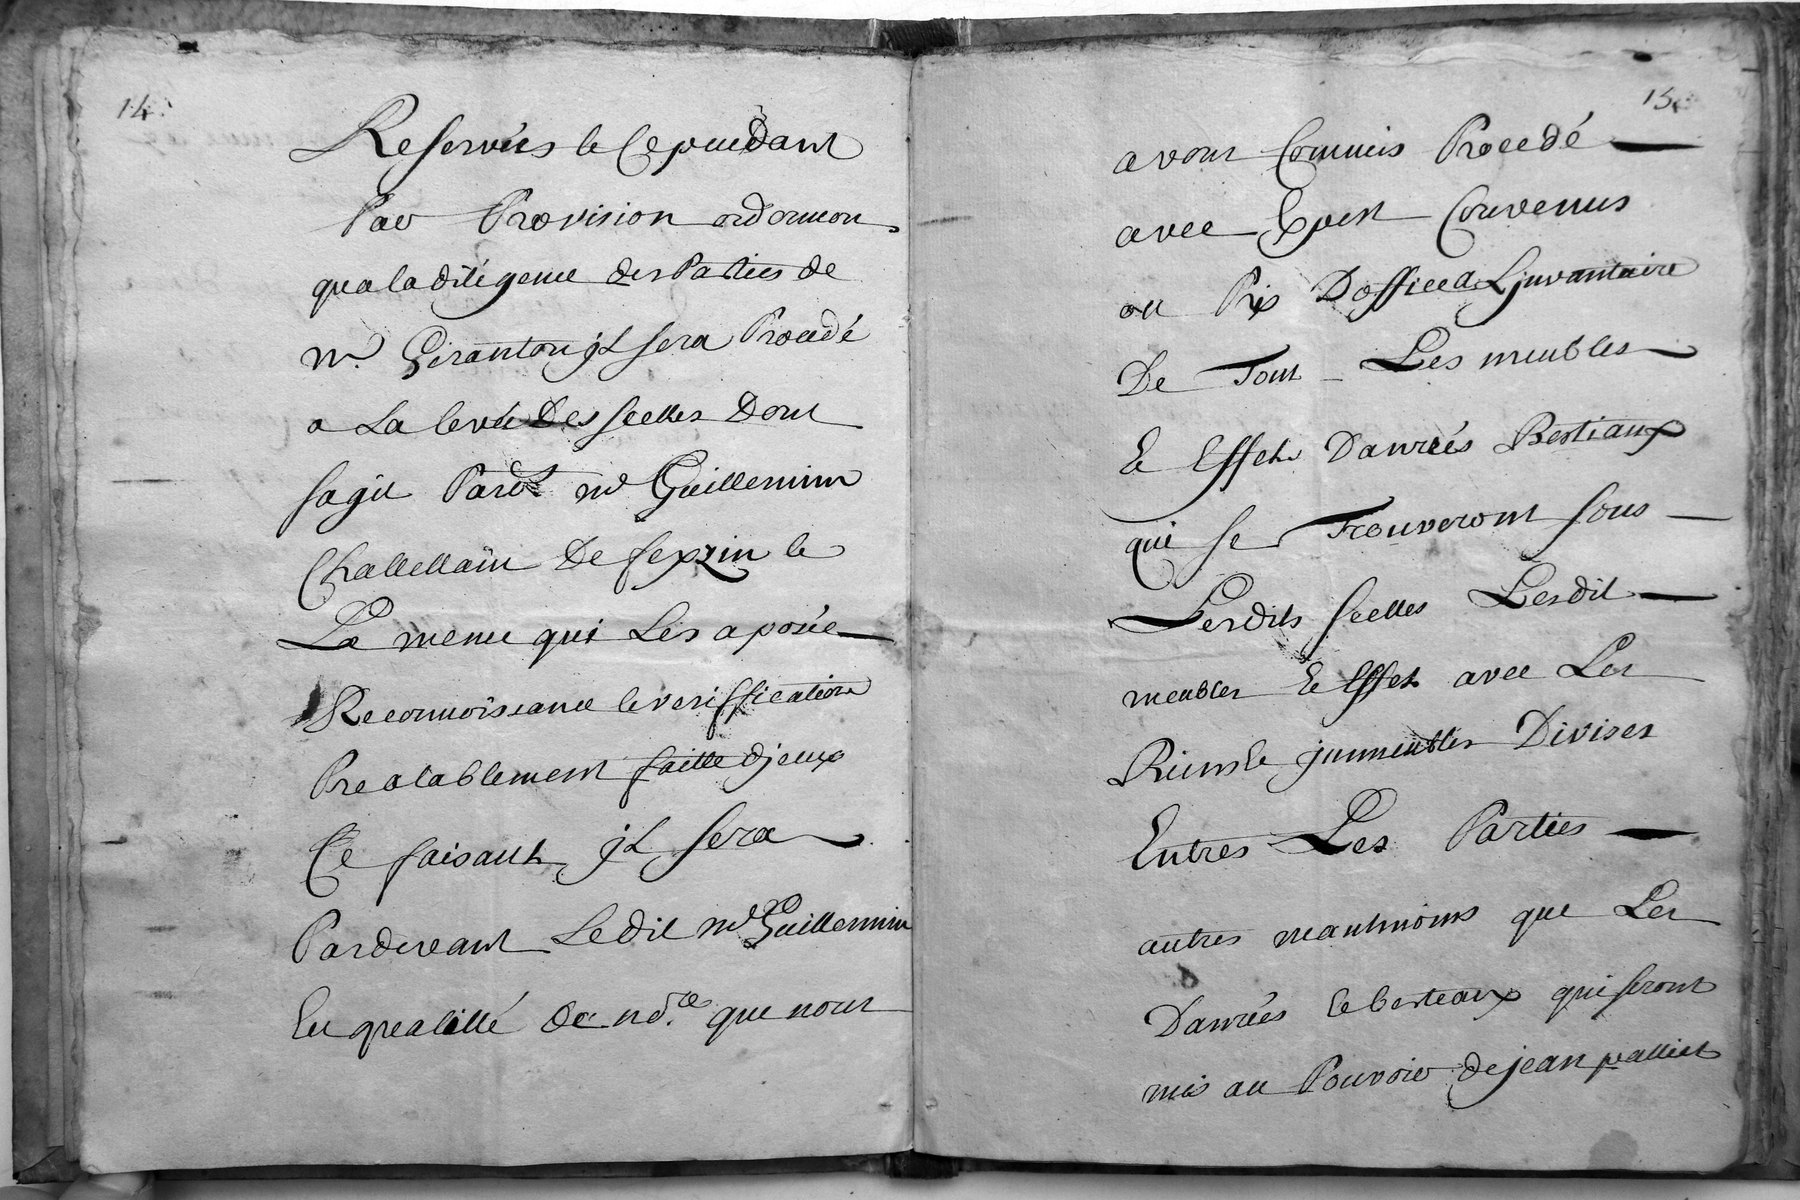 14.
Reservées le Cependant
Par Provision ordonnon
qua la diligence des Parties de
mr. Giranton jl sera Procedé
a La levée Des scelles Dont
sagit Pardt. mr Guillemin
Chatellain De feyzin le
La meme qui Les aposée
Reconnoissance le veriffication
Prealablement faitte djeux
Ce faisant jl sera
Pardevant Ledit mr Guillemin
En quallitté de nore. que nous
15.
avons Commis Procedé
avec Expert Convenus
ou Pris Doffice a Ljnvantaire
De Tous Les meubles
Et Effets Danrées Bestiaux
qui se Trouveront sous
Lesdits scelles Lesdit
meubles Et Effets avec Les
jmmeubles Divises
Entres Les Parties
autres neantmoins que Les
Danrées et bestiaux qui seront
mis au Pouvoir de jean palliet